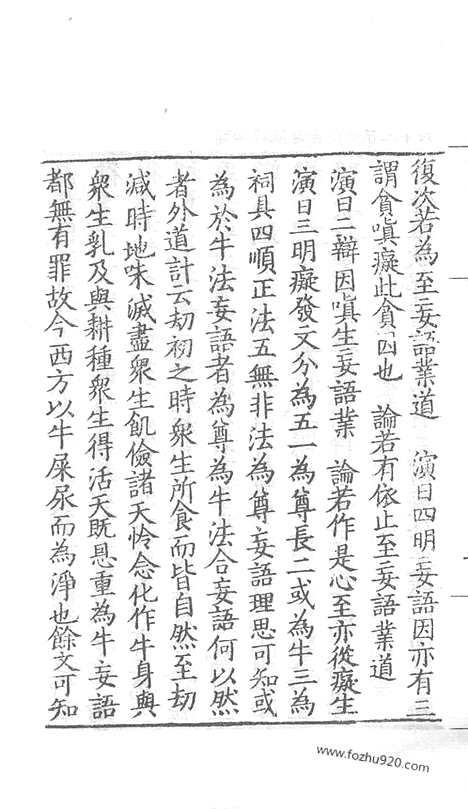 復次若為至妄語業道　演曰四明妄語因亦有三
謂貪嗔癡此貪因也　論若有依止至妄語業道
演曰二辯因嗔生妄語業　論若作是心至亦從癡生
演曰三明癡發文分為五一為尊長二或為牛三為
祠具四順正法五無非法為尊妄語理思可知或
為於牛法妄語者為尊為牛法合妄語何以然
者外道計云劫初之時衆生所食而皆自然至劫
減時地味滅盡衆生飢儉諸天怜念化作牛身與
衆生乳及與耕種衆生得活天既恩重為牛妄語
都無有罪故今西方以牛屎尿而為淨也餘文可知
www.fozhu920.com